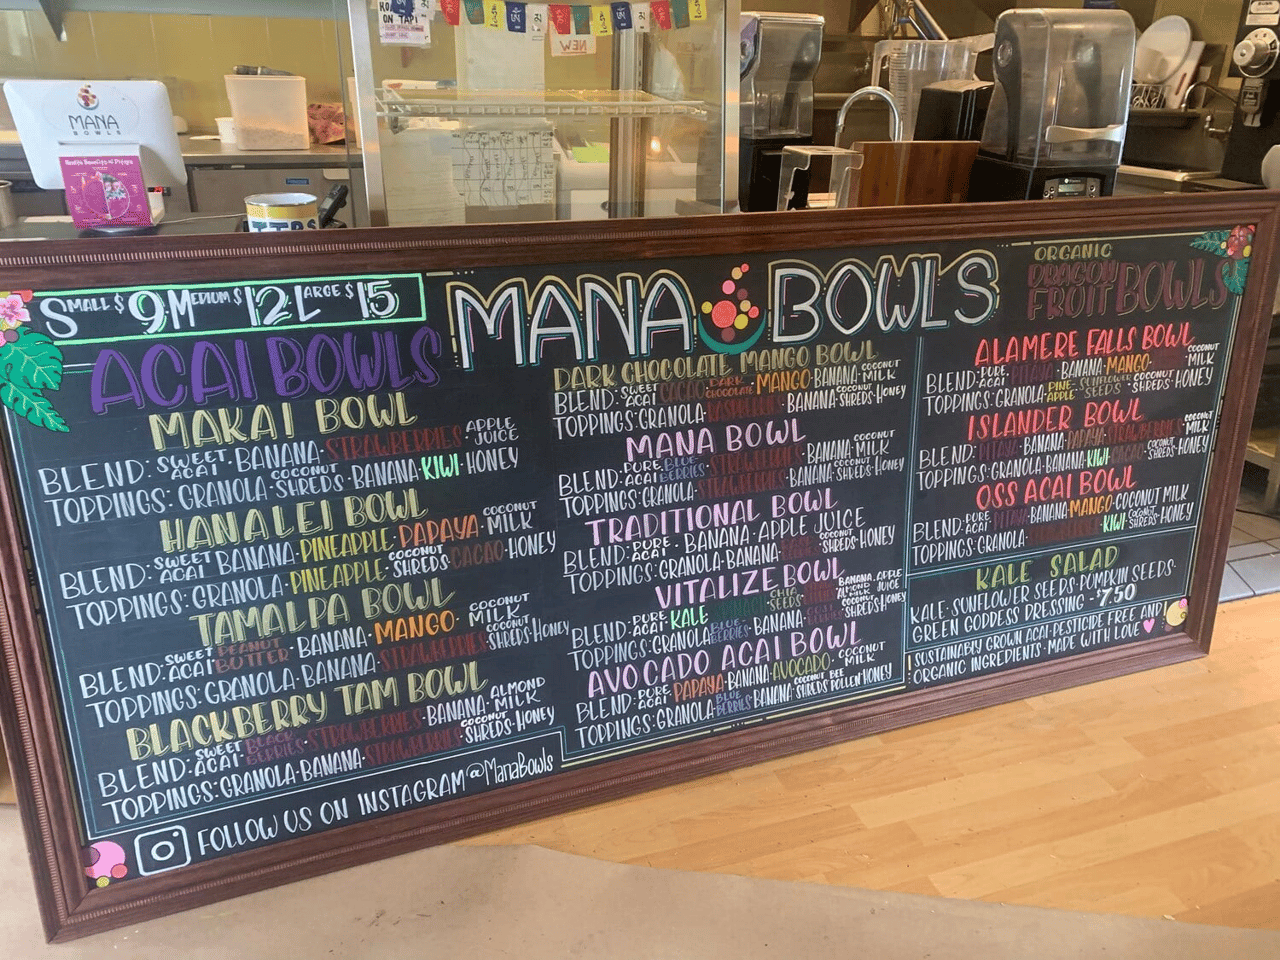 NEW
MANA
BOWLS
SMALL $9 MEDIUM $12 LARGE $15
MANA BOWLS
ACAI BOWLS
MAKAI BOWL
BLEND: SWEET ACAI · BANANA · STRAWBERRIES · APPLE JUICE
TOPPINGS: GRANOLA · COCONUT SHREDS · BANANA · KIWI · HONEY
HANALEI BOWL
BLEND: SWEET ACAI BANANA · PINEAPPLE · PAPAYA · COCONUT MILK
TOPPINGS: GRANOLA · PINEAPPLE · COCONUT SHREDS · CACAO · HONEY
TAMALPA BOWL
BLEND: SWEET ACAI · PEANUT BUTTER · BANANA · MANGO · COCONUT MILK
TOPPINGS: GRANOLA · BANANA · STRAWBERRIES · COCONUT SHREDS · HONEY
BLACKBERRY TAM BOWL
BLEND: SWEET ACAI · BLACKBERRIES · STRAWBERRIES · BANANA · ALMOND MILK
TOPPINGS: GRANOLA · BANANA · STRAWBERRIES · COCONUT SHREDS · HONEY
FOLLOW US ON INSTAGRAM @ManaBowls
DARK CHOCOLATE MANGO BOWL
BLEND: SWEET ACAI · CACAO · DARK CHOCOLATE · MANGO · BANANA · COCONUT MILK
TOPPINGS: GRANOLA · RASPBERRIES · BANANA · COCONUT SHREDS · HONEY
MANA BOWL
BLEND: PURE ACAI · BLUEBERRIES · STRAWBERRIES · BANANA · COCONUT MILK
TOPPINGS: GRANOLA · STRAWBERRIES · BANANA · COCONUT SHREDS · HONEY
TRADITIONAL BOWL
BLEND: PURE ACAI · BANANA · APPLE JUICE
TOPPINGS: GRANOLA · BANANA · COCONUT SHREDS · HONEY
VITALIZE BOWL
BLEND: PURE ACAI · KALE · SPINACH · CHIA SEEDS · BANANA · APPLE JUICE ALMOND MILK
TOPPINGS: GRANOLA · BLUEBERRIES · BANANA · GOJI BERRIES · COCONUT SHREDS · HONEY
AVOCADO ACAI BOWL
BLEND: PURE ACAI · PAPAYA · BANANA · AVOCADO · COCONUT MILK
TOPPINGS: GRANOLA · BLUEBERRIES · BANANA · COCONUT SHREDS · BEE POLLEN · HONEY
ORGANIC
DRAGON FRUIT BOWLS
ALAMERE FALLS BOWL
BLEND: PURE ACAI · PITAYA · BANANA · MANGO · COCONUT MILK
TOPPINGS: GRANOLA · PINEAPPLE · SUNFLOWER SEEDS · COCONUT SHREDS · HONEY
ISLANDER BOWL
BLEND: PITAYA · BANANA · PAPAYA · STRAWBERRIES · COCONUT MILK
TOPPINGS: GRANOLA · BANANA · KIWI · CACAO · COCONUT SHREDS · HONEY
OSS ACAI BOWL
BLEND: PURE ACAI · PITAYA · BANANA · MANGO · COCONUT MILK
TOPPINGS: GRANOLA · STRAWBERRIES · KIWI · COCONUT SHREDS · HONEY
KALE SALAD
KALE · SUNFLOWER SEEDS · PUMPKIN SEEDS ·
GREEN GODDESS DRESSING - $7.50
SUSTAINABLY GROWN ACAI · PESTICIDE FREE AND
ORGANIC INGREDIENTS · MADE WITH LOVE